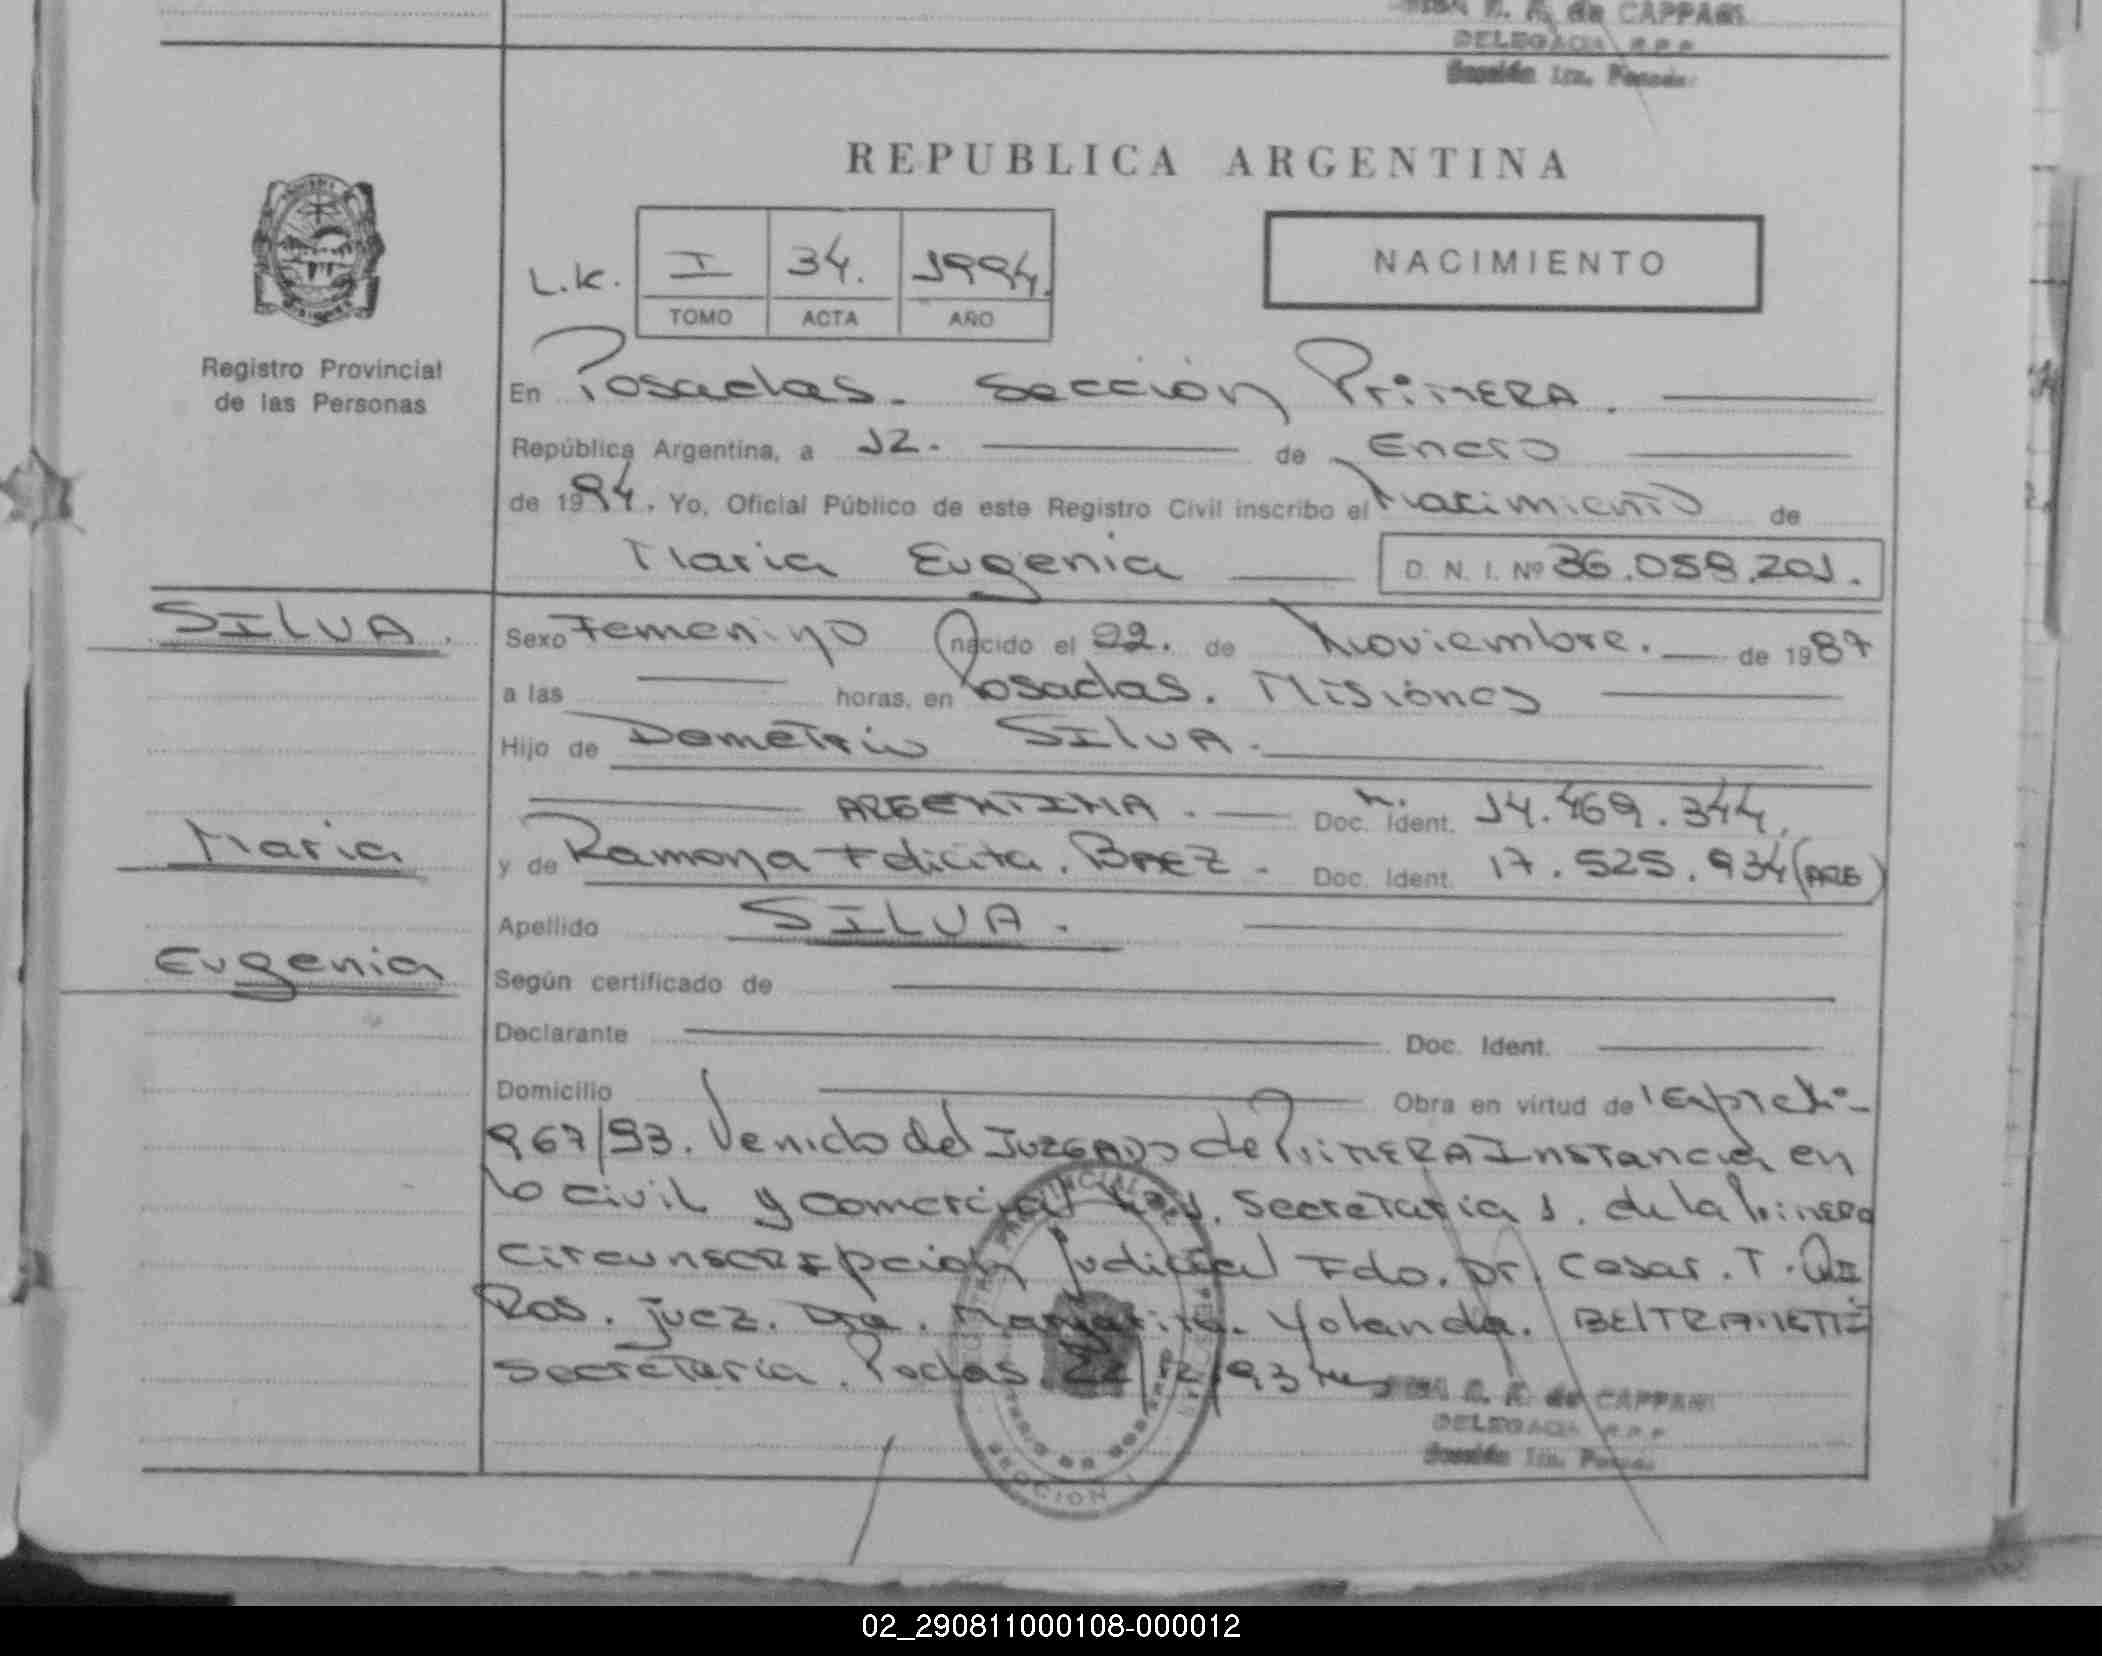 de CAPPANI
DELEGADA R.P.P.
Sección 1ra. Posadas
REPUBLICA ARGENTINA
NACIMIENTO
L.K. I 34. 1994.
TOMO ACTA AÑO
Registro Provincial
de las Personas
En Posadas. Sección Primera.
República Argentina, a 12. de Enero
de 1994. Yo, Oficial Público de este Registro Civil inscribo el Nacimiento de
Maria Eugenia D. N. I. Nº 36.058.201.
SILVA.
Sexo Femenino nacido el 22. de Noviembre. de 1987
a las horas, en Posadas. Misiones
Hijo de Demetrio SILVA.
ARGENTINA. Doc. Ident. 14.469.344.
Maria
y de Ramona Felicita. BAEZ - Doc. Ident. 17.525.934 (ARG)
Apellido SILVA.
Eugenia
Según certificado de
Declarante Doc. Ident.
Domicilio Obra en virtud de
967/93. Venido del JUZGADO de PRIMERA Instancia en
lo civil y comercial Secretaria 1. de la Primera
circunscripción judicial Fdo. Dr. Cesar. T.
Ros. juez. Dra. Margarita. Yolanda.
secretaria. Podas. 22/12/93
de CAPPANI
DELEGADA R.P.P.
Sección 1ra. Posadas
02_290811000108-000012